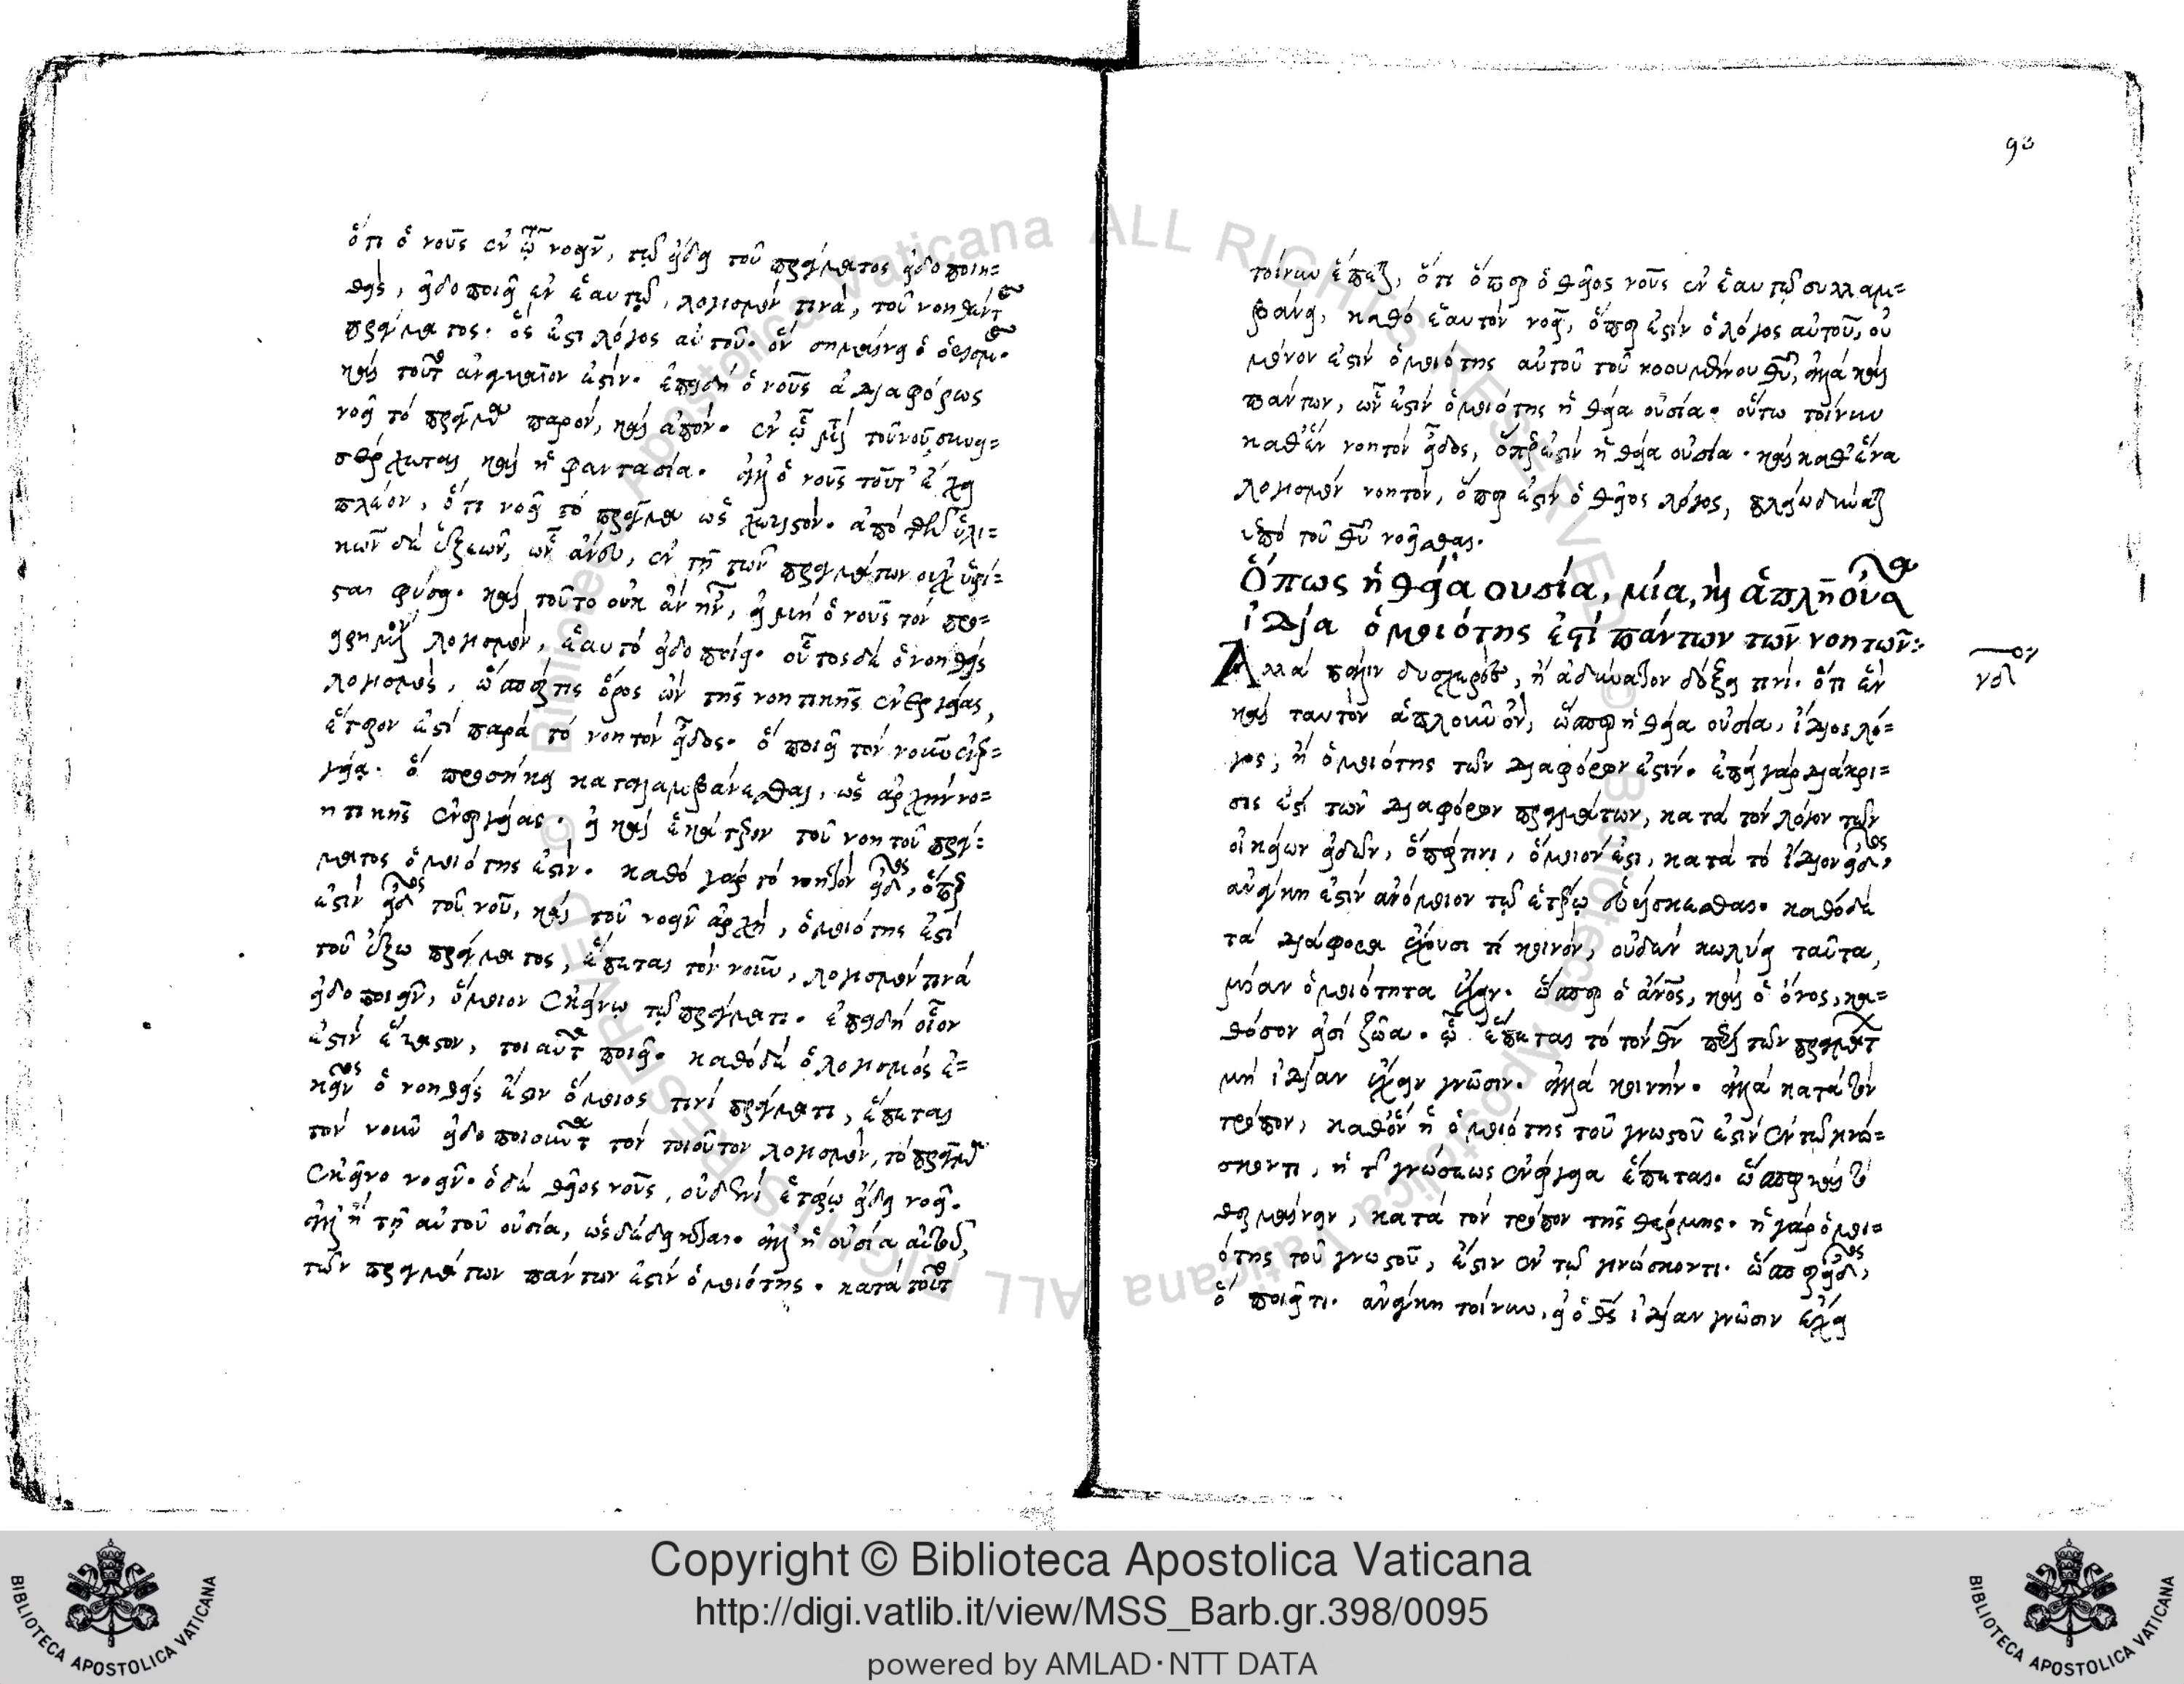 ὅτι ὁ νοῦς ἐν ᾧ νοεῖν, τῷ εἴδει τοῦ πράγματος εἰδοποιη=
θείς, εἰδοποιεῖ ἐν ἑαυτῷ, λογισμόν τινά, τοῦ νοηθέντος
πράγματος. ὅς ἐστι λόγος αὐτοῦ. ὃν σημαίνει ὁ ὁρισμός.
καὶ τοῦτο ἀναγκαῖον ἐστίν. ἐπειδὴ ὁ νοῦς ἀδιαφόρως
νοεῖ τὸ πρᾶγμα παρόν, καὶ ἀπόν. ἐν ᾧ μετὰ τοῦ νοῦ συνει=
σέρχεται καὶ ἡ φαντασία. ἀλλ' ὁ νοῦς τοῦτ' ἔχει
πλέον, ὅτι νοεῖ τὸ πρᾶγμα ὡς χωριστόν. ἀπὸ τῶν ὑλι=
κῶν δὲ ἕξεων, ὧν ἄνευ, ἐν τῇ τῶν πραγμάτων οὐχ ὑφί=
σται φύσει. καὶ τοῦτο οὐκ ἂν ἦν, εἰ μὴ ὁ νοῦς τὸν προ=
ειρημένον λογισμόν, ἑαυτῷ εἰδοποίει. οὗτος δὲ ὁ νοηθείς
λογισμός, ὥσπερ τις ὅρος ὢν τῆς νοητικῆς ἐνεργείας,
ἕτερον ἐστὶ παρὰ τὸ νοητὸν εἶδος. ὃ ποιεῖ τὸν νοῦν ἐνερ=
γείᾳ. ὃ προσήκει καταλαμβάνεσθαι, ὡς ἀρχὴν νο=
ητικῆς ἐνεργείας. εἰ καὶ ἑκάτερον τοῦ νοητοῦ πρά=
γματος ὁμοιότης ἐστίν. καθὸ γὰρ τὸ νοητὸν εἶδος, ὅπερ
ἐστὶν εἶδος τοῦ νοῦ, καὶ τοῦ νοεῖν ἀρχή, ὁμοιότης ἐστί
τοῦ ἔξω πράγματος, ἕπεται τὸν νοῦν, λογισμόν τινά
εἰδοποιεῖν, ὅμοιον ἐκείνῳ τῷ πράγματι. ἐπειδὴ οἷον
ἐστὶν ἕκαστον, τοιαῦτα ποιεῖ. καθὸ δὲ ὁ λογισμὸς ἐ=
κεῖνος ὁ νοηθεὶς ἐστιν ὅμοιος τινὶ πράγματι, ἕπεται
τὸν νοῦν εἰδοποιοῦντα τὸν τοιοῦτον λογισμόν, τὸ πρᾶγμα
ἐκεῖνο νοεῖν. ὁ δὲ θεῖος νοῦς, οὐδενὶ ἑτέρῳ εἴδει νοεῖ.
ἀλλ' ἢ τῇ αὐτοῦ οὐσίᾳ, ὡς δέδεικται. ἀλλ' ἡ οὐσία αὐτοῦ,
τῶν πραγμάτων πάντων ἐστὶν ὁμοιότης. κατὰ τοῦτο
90
τοίνυν ἕπεται, ὅτι ὅπερ ὁ θεῖος νοῦς ἐν ἑαυτῷ συλλαμ=
βάνει, καθὸ ἑαυτὸν νοεῖ, ὅπερ ἐστὶν ὁ λόγος αὐτοῦ, οὐ
μόνον ἐστὶν ὁμοιότης αὐτοῦ τοῦ νοουμένου θυ, ἀλλὰ καὶ
πάντων, ὧν ἐστὶν ὁμοιότης ἡ θεία οὐσία. οὕτω τοίνυν
καθ' ἓν νοητὸν εἶδος, ὅπερ ἐστὶν ἡ θεία οὐσία. καὶ καθ' ἕνα
λογισμὸν νοητόν, ὅπερ ἐστὶν ὁ θεῖος λόγος, πλείω δύναται
ὑπὸ τοῦ θυ νοεῖσθαι.
Ὅπως ἡ θεία ουσία, μία, καὶ ἁπλῆ οὖσα
ἰδία ὁμοιότης ἐστὶ πάντων τῶν νοητῶν:
Ἀλλὰ πάλιν δυσχερές, ἢ ἀδύνατον δόξει τινί. ὅτι ἓν
καὶ ταυτὸν ἁπλοῦν ὄν, ὥσπερ ἡ θεία οὐσία, ἴδιος λό=
γος, ἢ ὁμοιότης τῶν διαφόρων ἐστίν. ἐπεὶ γὰρ διάκρι=
σις ἐστὶ τῶν διαφόρων πραγμάτων, κατὰ τὸν λόγον τῶν
οἰκείων εἰδῶν, ὅπερ τινι, ὅμοιόν ἐστι, κατὰ τὸ ἴδιον εἶδος,
ἀνάγκη ἐστὶν ἀνόμοιον τῷ ἑτέρῳ εὑρίσκεσθαι. καθὸ δὲ
τὰ διάφορα ἔχουσι τὶ κοινόν, οὐδὲν κωλύει ταῦτα,
μίαν ὁμοιότητα ἔχειν. ὥσπερ ὁ ἄνος, καὶ ὁ ὄνος, κα=
θόσον εἰσὶ ζῶα. ᾧ ἕπεται τὸ τὸν θν περὶ τῶν πραγμάτων
μὴ ἰδίαν ἔχειν γνῶσιν. ἀλλὰ κοινήν. ἀλλὰ κατὰ τὸν
τρόπον, καθ' ὃν ἡ ὁμοιότης τοῦ γνωστοῦ ἐστὶν ἐν τῷ γινώ=
σκοντι, ἡ τῆς γνώσεως ἐνέργεια ἕπεται. ὥσπερ καὶ τὸ
θερμαίνειν, κατὰ τὸν τρόπον τῆς θέρμης. ἡ γὰρ ὁμοι=
ότης τοῦ γνωστοῦ, ἐστὶν ἐν τῷ γινώσκοντι. ὥσπερ εἶδος,
ὃ ποιεῖ τι. ἀνάγκη τοίνυν, εἰ ὁ θς ἰδίαν γνῶσιν ἔχει
Copyright © Biblioteca Apostolica Vaticana
http://digi.vatlib.it/view/MSS_Barb.gr.398/0095
powered by AMLAD·NTT DATA
BIBLIOTECA APOSTOLICA VATICANA
BIBLIOTECA APOSTOLICA VATICANA